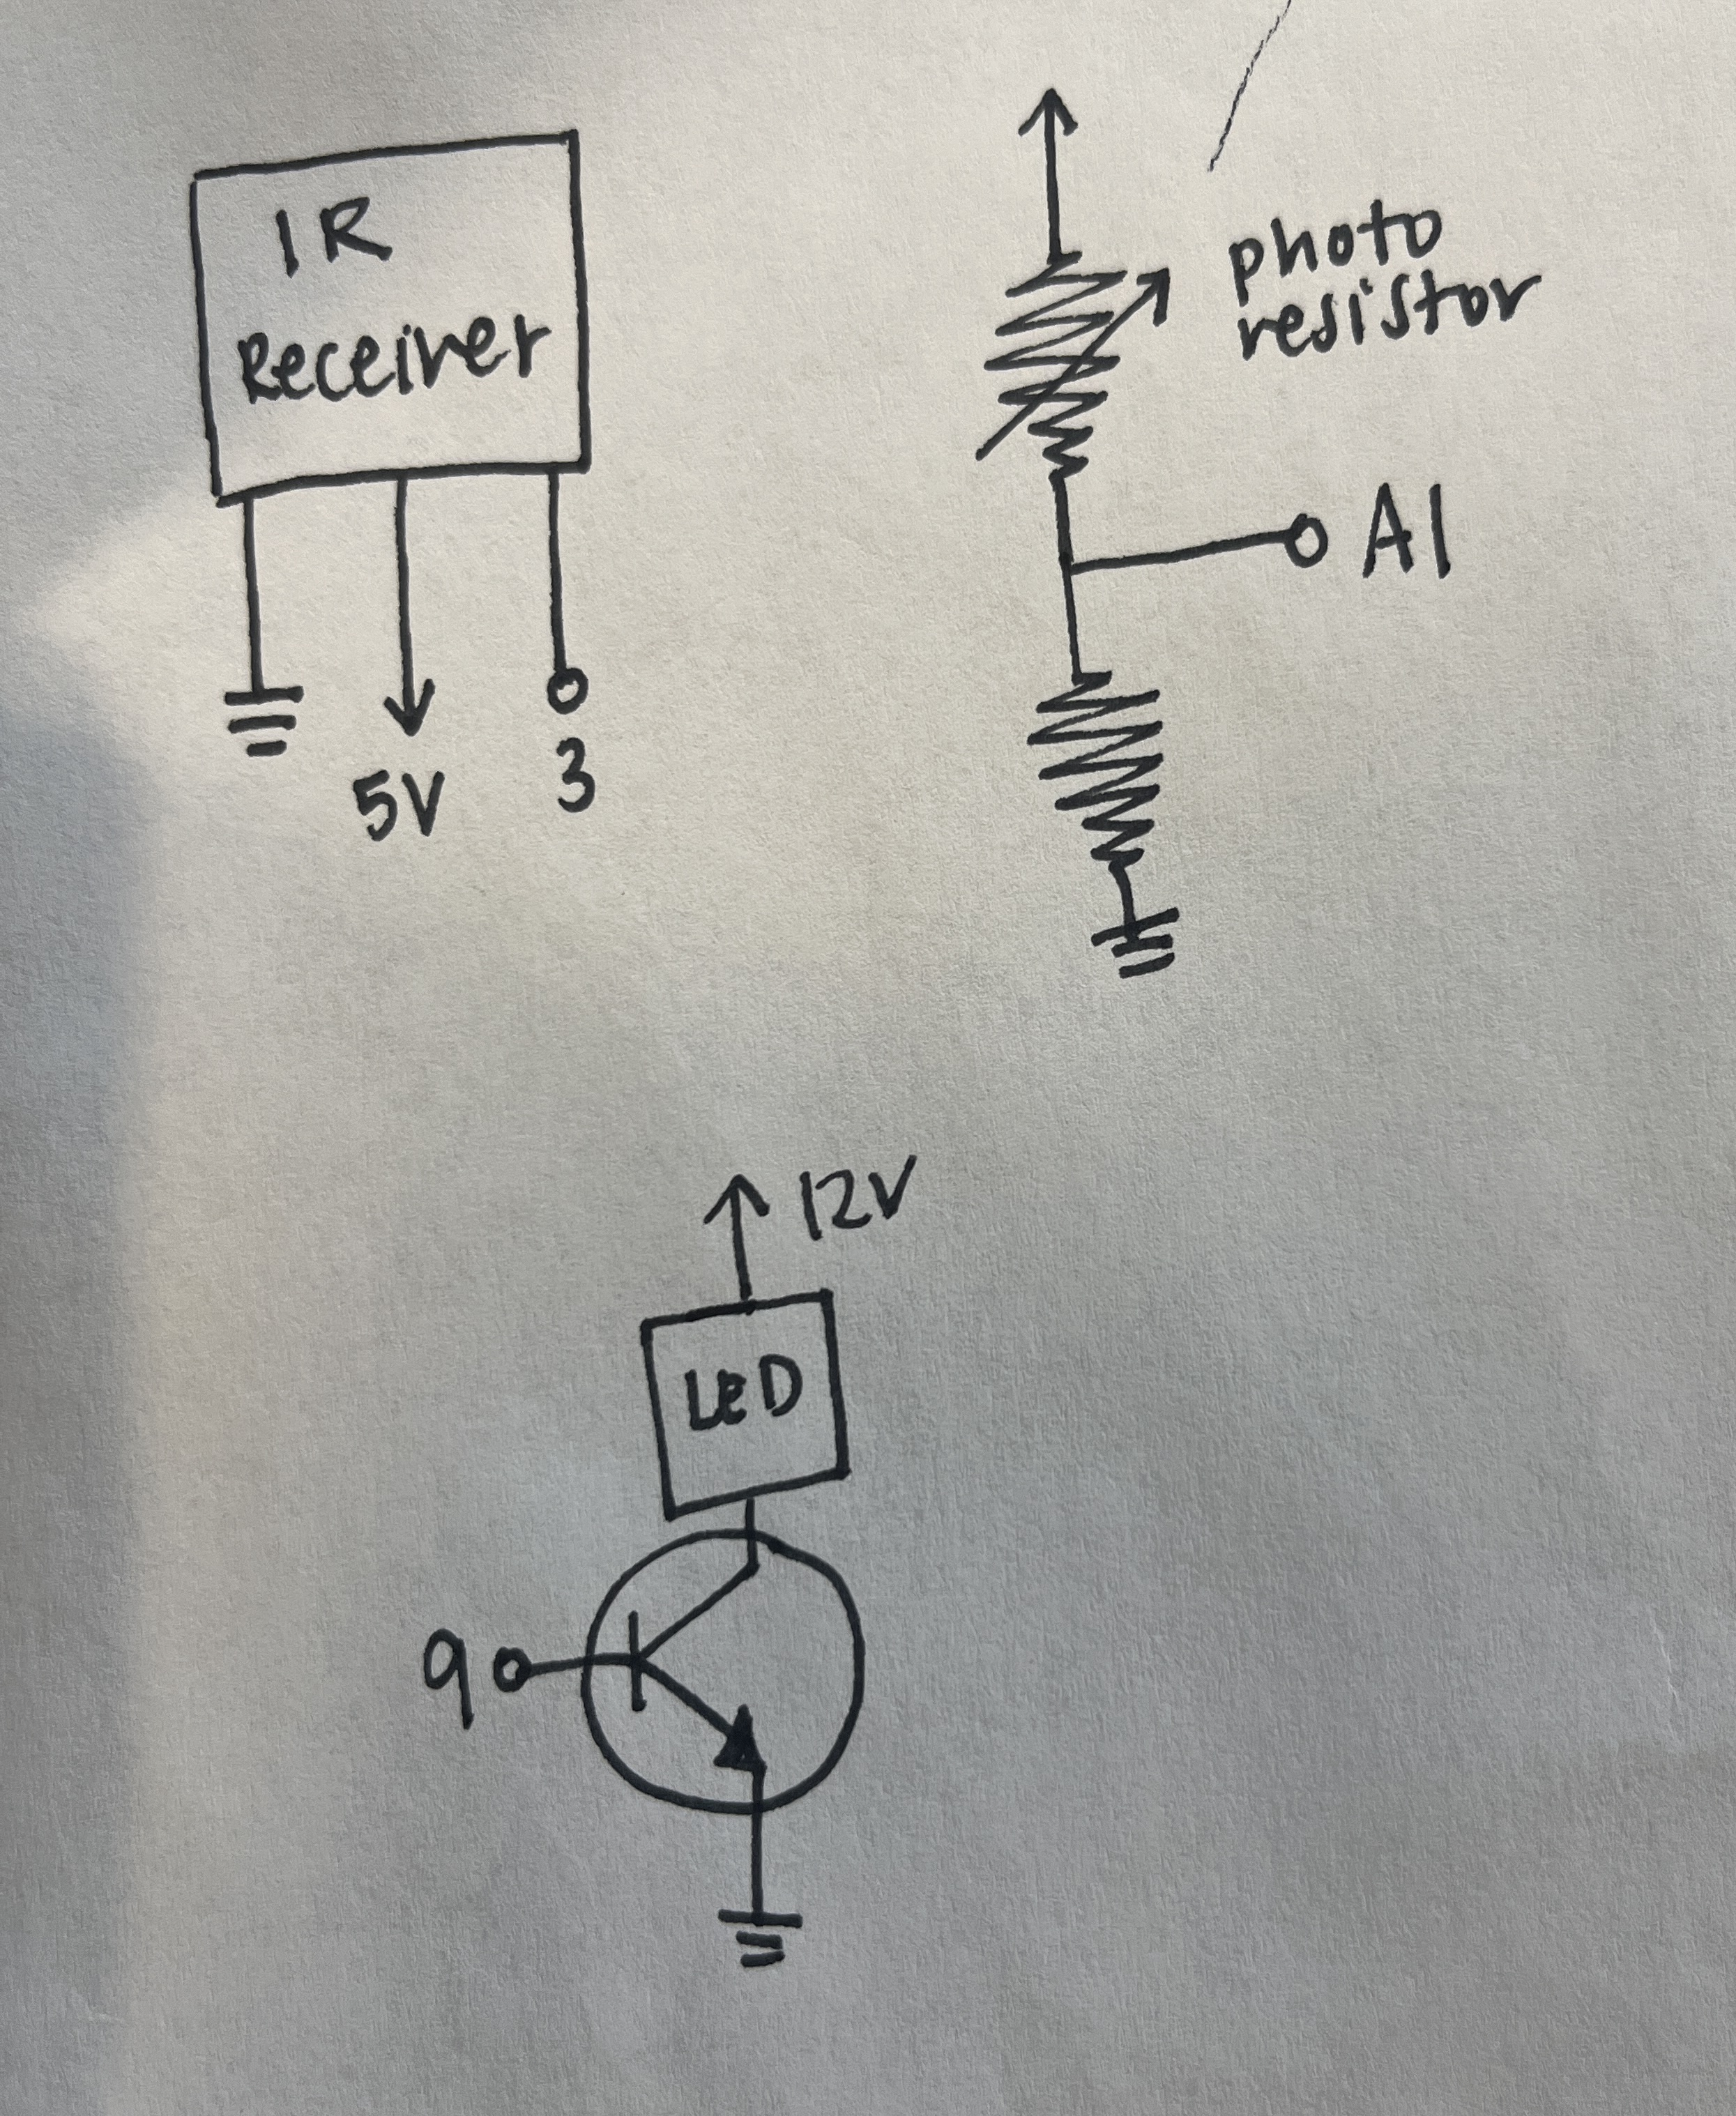 IR
Receiver
5V
3
photo
resistor
A1
12V
LED
9